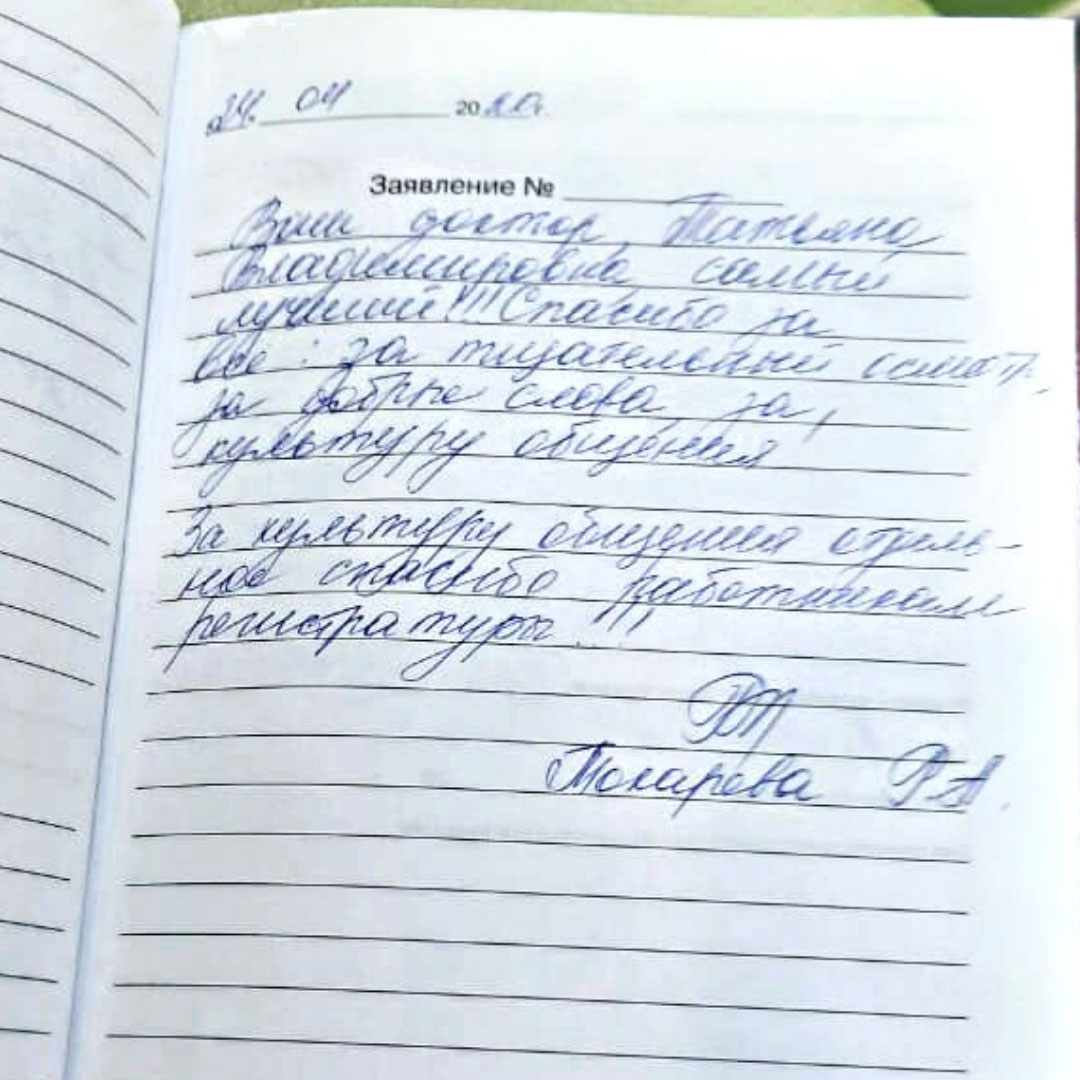 24. 04 2020г.
Заявление №
Ваш доктор Татьяна
Владимировна самый
лучший!!! Спасибо за
все: за тщательный осмотр,
за добрые слова, за
культуру общения
За культуру общения отдель-
ное спасибо работникам
регистратуры!!!
Токарева Р.А.